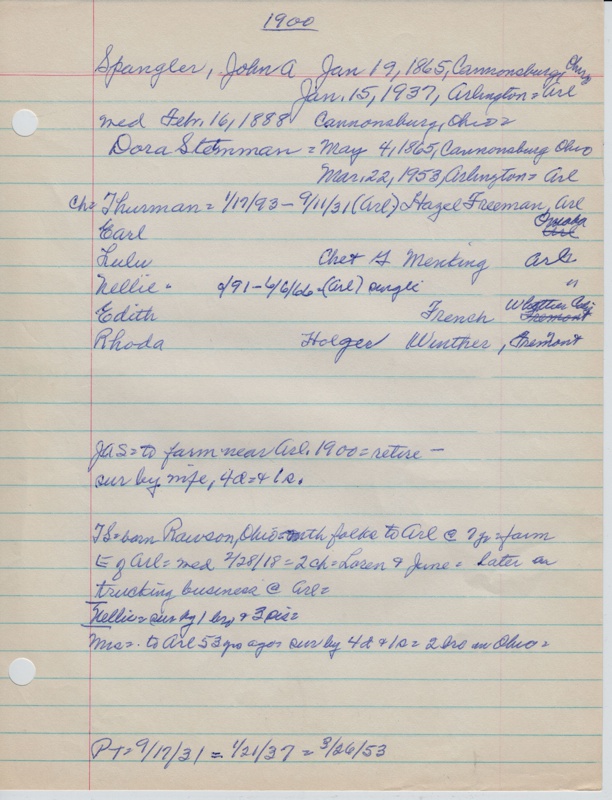 1900
Spangler, John A Jan 19, 1865, Cannonsburg, Ohio
Jan. 15, 1937, Arlington = Arl
med Febr. 16, 1888 Cannonsburg, Ohio =
Dora Steinman = May 4, 1865, Cannonsburg Ohio
Mar. 22, 1953, Arlington = Arl
Ch = Thurman = 1/17/93 - 9/11/31 (Arl) Hazel Freeman, Arl
Earl Omaha Arl
Lulu Chet G Menking Arl
Nellie " /91 - 6/6/66 - (Arl) single "
Edith French Whittier Fremont
Rhoda Holger Winther, Fremont
JAS = to farm near Arl. 1900 = retire -
sur by wife, 4d = & 1s.
TS = born Rawson, Ohio = with folks to Arl @ 7yr = farm
E of Arl = med 2/28/18 = 2ch = Loren & June = later on
trucking business @ Arl =
Nellie = sur by 1 bro & 3 sis =
Mrs = to Arl 53 yrs ago = sur by 4d & 1s = 2 bro in Ohio =
PT = 9/17/31 = 1/21/37 = 3/26/53